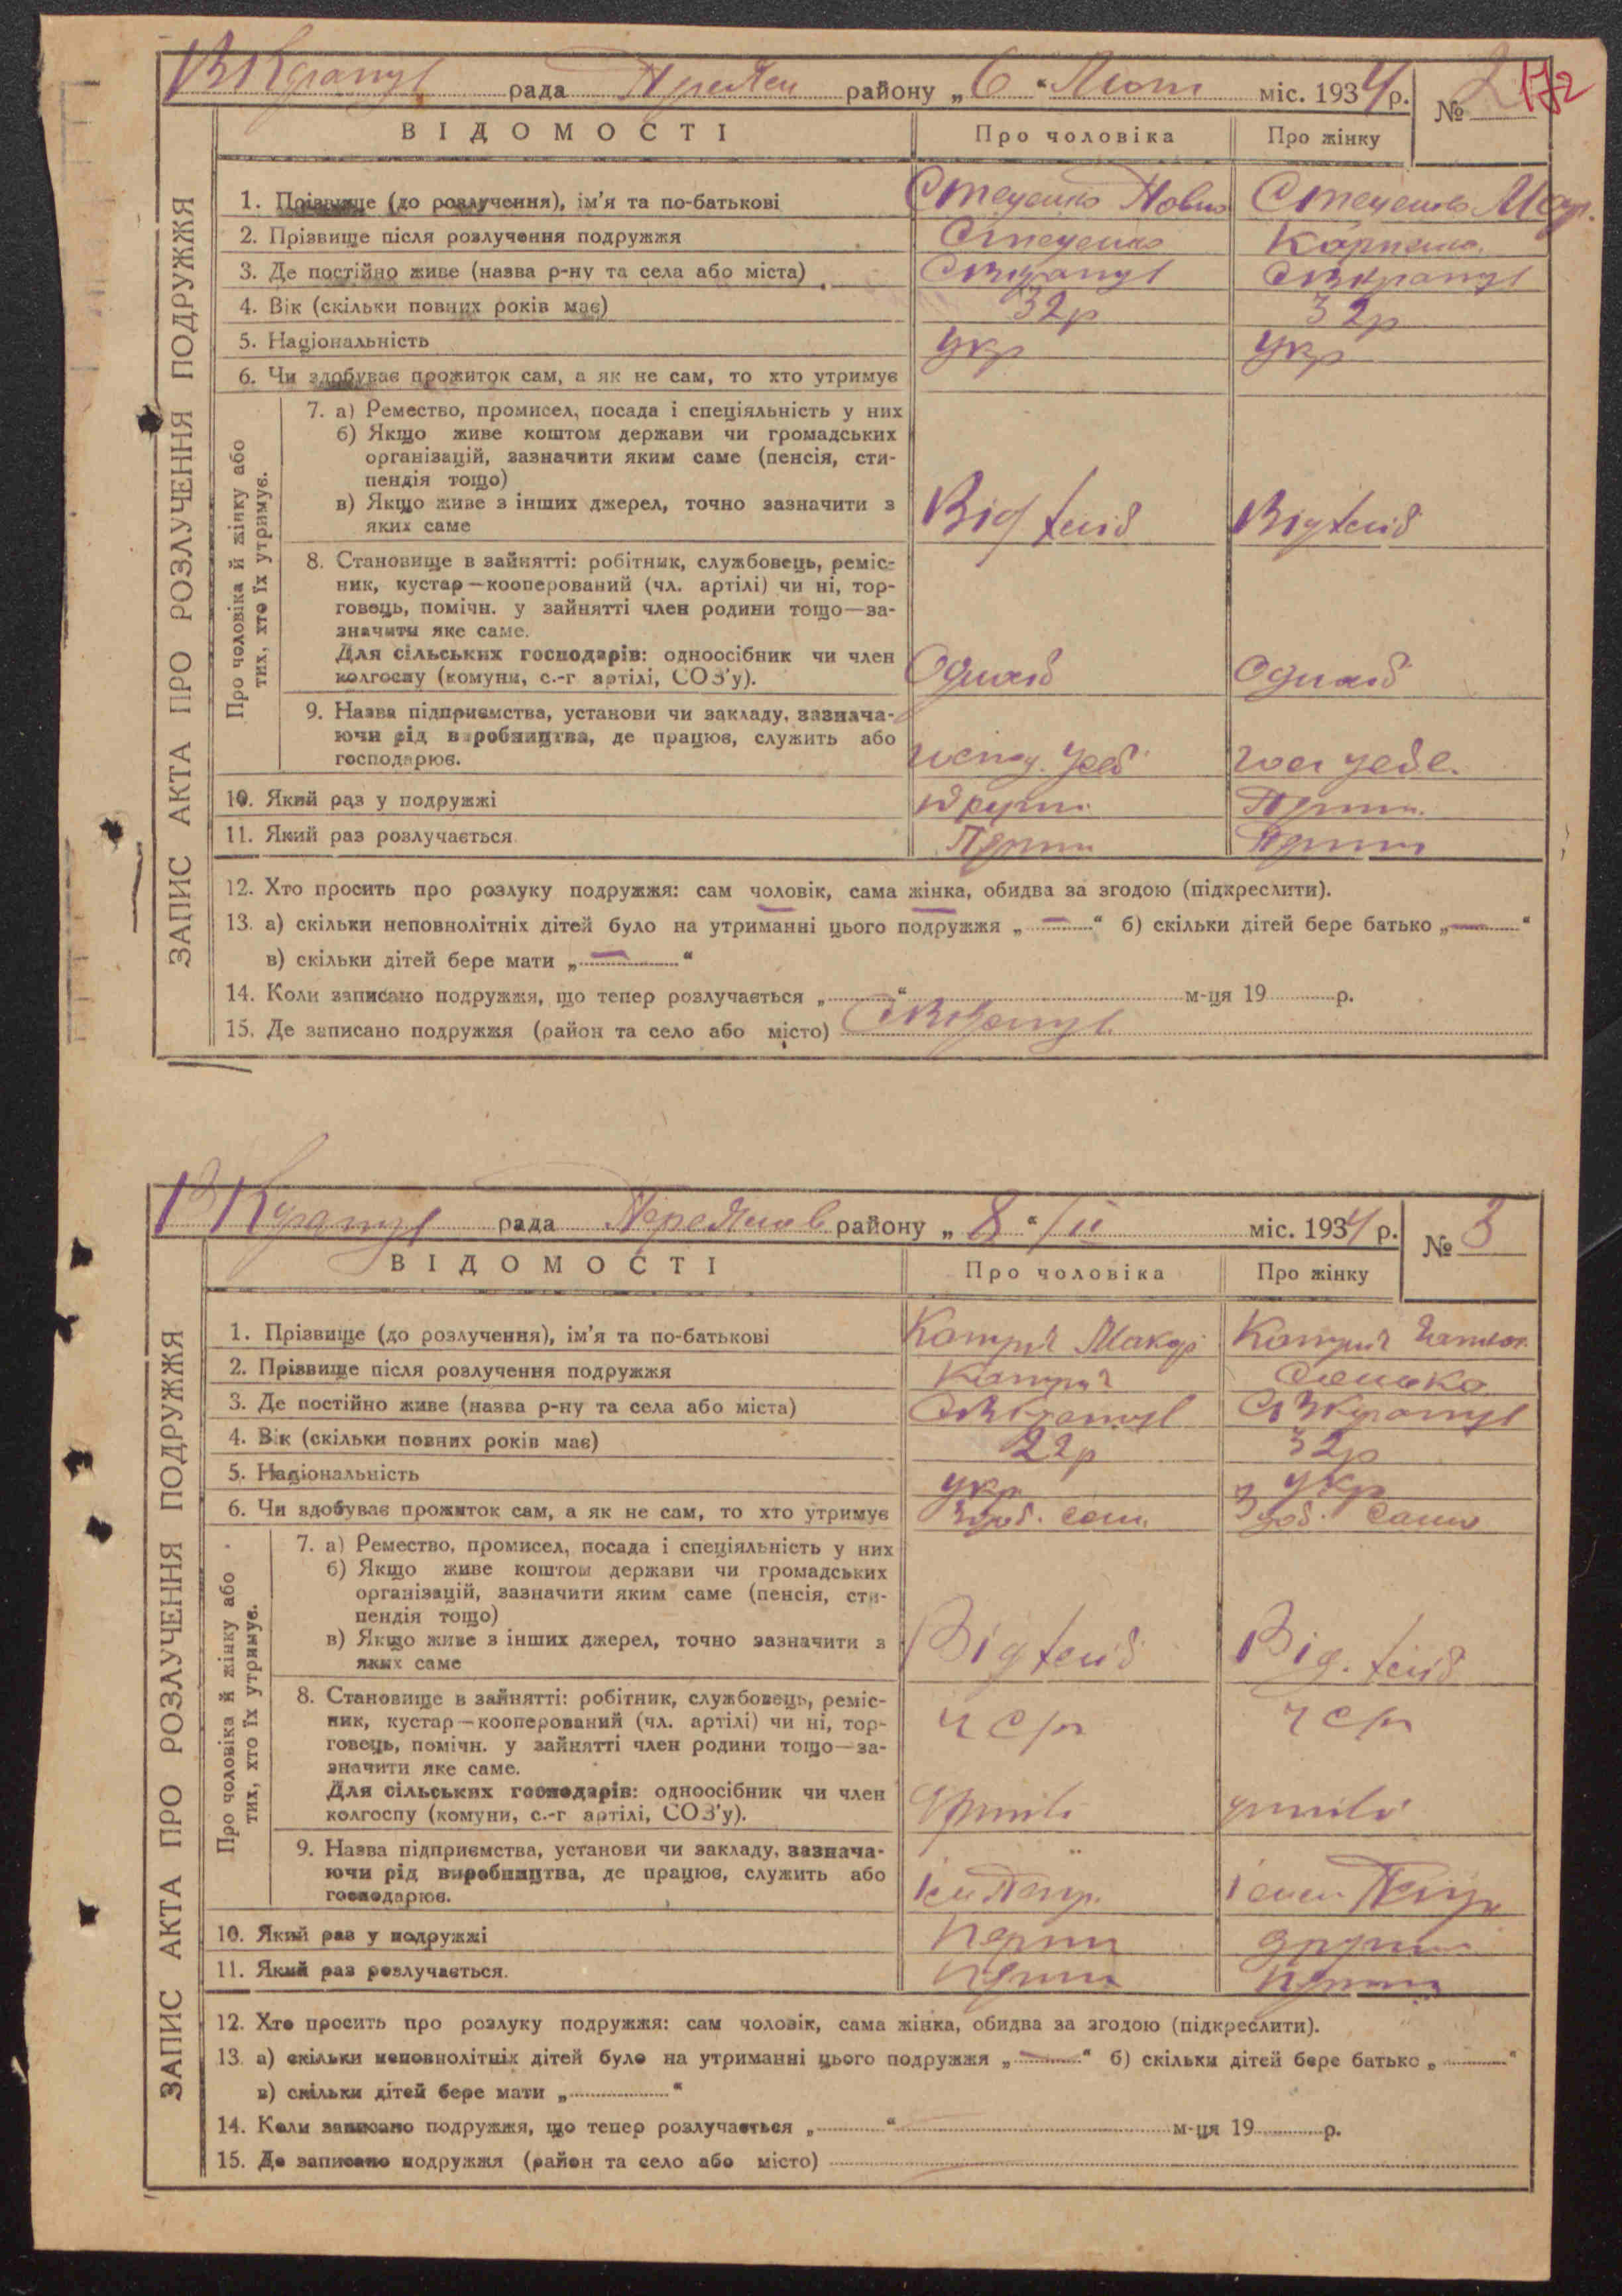 ВКарапул рада Пре району „6“ Лют міс. 1934 р. № 2
172
ВІДОМОСТІ Про чоловіка Про жінку
ЗАПИС АКТА ПРО РОЗЛУЧЕННЯ ПОДРУЖЖЯ
1. Прізвище (до розлучення), ім'я та по-батькові Стеценко Стеценко
2. Прізвище після розлучення подружжя Стеценко Карпенко
3. Де постійно живе (назва р-ну та села або міста)
4. Вік (скільки повних років має) 32р 32р
5. Національність укр укр
6. Чи здобуває прожиток сам, а як не сам, то хто утримує
Про чоловіка й жінку або тих, хто їх утримує.
7. а) Ремество, промисел, посада і спеціяльність у них
б) Якщо живе коштом держави чи громадських
організацій, зазначити яким саме (пенсія, сти-
пендія тощо)
в) Якщо живе з інших джерел, точно зазначити з
яких саме Від Від
8. Становище в зайнятті: робітник, службовець, реміс-
ник, кустар—кооперований (чл. артілі) чи ні, тор-
говець, помічн. у зайнятті член родини тощо—за-
значити яке саме.
Для сільських господарів: одноосібник чи член
колгоспу (комуни, с.-г артілі, СОЗ'у).
9. Назва підприємства, установи чи закладу, зазнача-
ючи рід виробництва, де працює, служить або
господарює.
10. Який раз у подружжі други Перши
11. Який раз розлучається Перши Перши
12. Хто просить про розлуку подружжя: сам чоловік, сама жінка, обидва за згодою (підкреслити).
13. а) скільки неповнолітніх дітей було на утриманні цього подружжя „—“ б) скільки дітей бере батько „—“
в) скільки дітей бере мати „—“
14. Коли записано подружжя, що тепер розлучається „ “ м-ця 19 р.
15. Де записано подружжя (район та село або місто)
ВКарапул рада Переяслав району „8“ / ІІ міс. 1934 р. № 3
ВІДОМОСТІ Про чоловіка Про жінку
ЗАПИС АКТА ПРО РОЗЛУЧЕННЯ ПОДРУЖЖЯ
1. Прізвище (до розлучення), ім'я та по-батькові Катрич Макар Катрич
2. Прізвище після розлучення подружжя Катрич
3. Де постійно живе (назва р-ну та села або міста)
4. Вік (скільки повних років має) 22р 32р
5. Національність укр укр
6. Чи здобуває прожиток сам, а як не сам, то хто утримує Здоб. сам. Здоб. само
Про чоловіка й жінку або тих, хто їх утримує.
7. а) Ремество, промисел, посада і спеціяльність у них
б) Якщо живе коштом держави чи громадських
організацій, зазначити яким саме (пенсія, сти-
пендія тощо)
в) Якщо живе з інших джерел, точно зазначити з
яких саме Від Від.
8. Становище в зайнятті: робітник, службовець, реміс-
ник, кустар—кооперований (чл. артілі) чи ні, тор-
говець, помічн. у зайнятті член родини тощо—за-
значити яке саме.
Для сільських господарів: одноосібник чи член
колгоспу (комуни, с.-г артілі, СОЗ'у).
9. Назва підприємства, установи чи закладу, зазнача-
ючи рід виробництва, де працює, служить або
господарює.
10. Який раз у подружжі перши други
11. Який раз розлучається. перши перши
12. Хто просить про розлуку подружжя: сам чоловік, сама жінка, обидва за згодою (підкреслити).
13. а) скільки неповнолітніх дітей було на утриманні цього подружжя „—“ б) скільки дітей бере батько „ “
в) скільки дітей бере мати „ “
14. Коли записано подружжя, що тепер розлучається „ “ м-ця 19 р.
15. Де записано подружжя (район та село або місто)